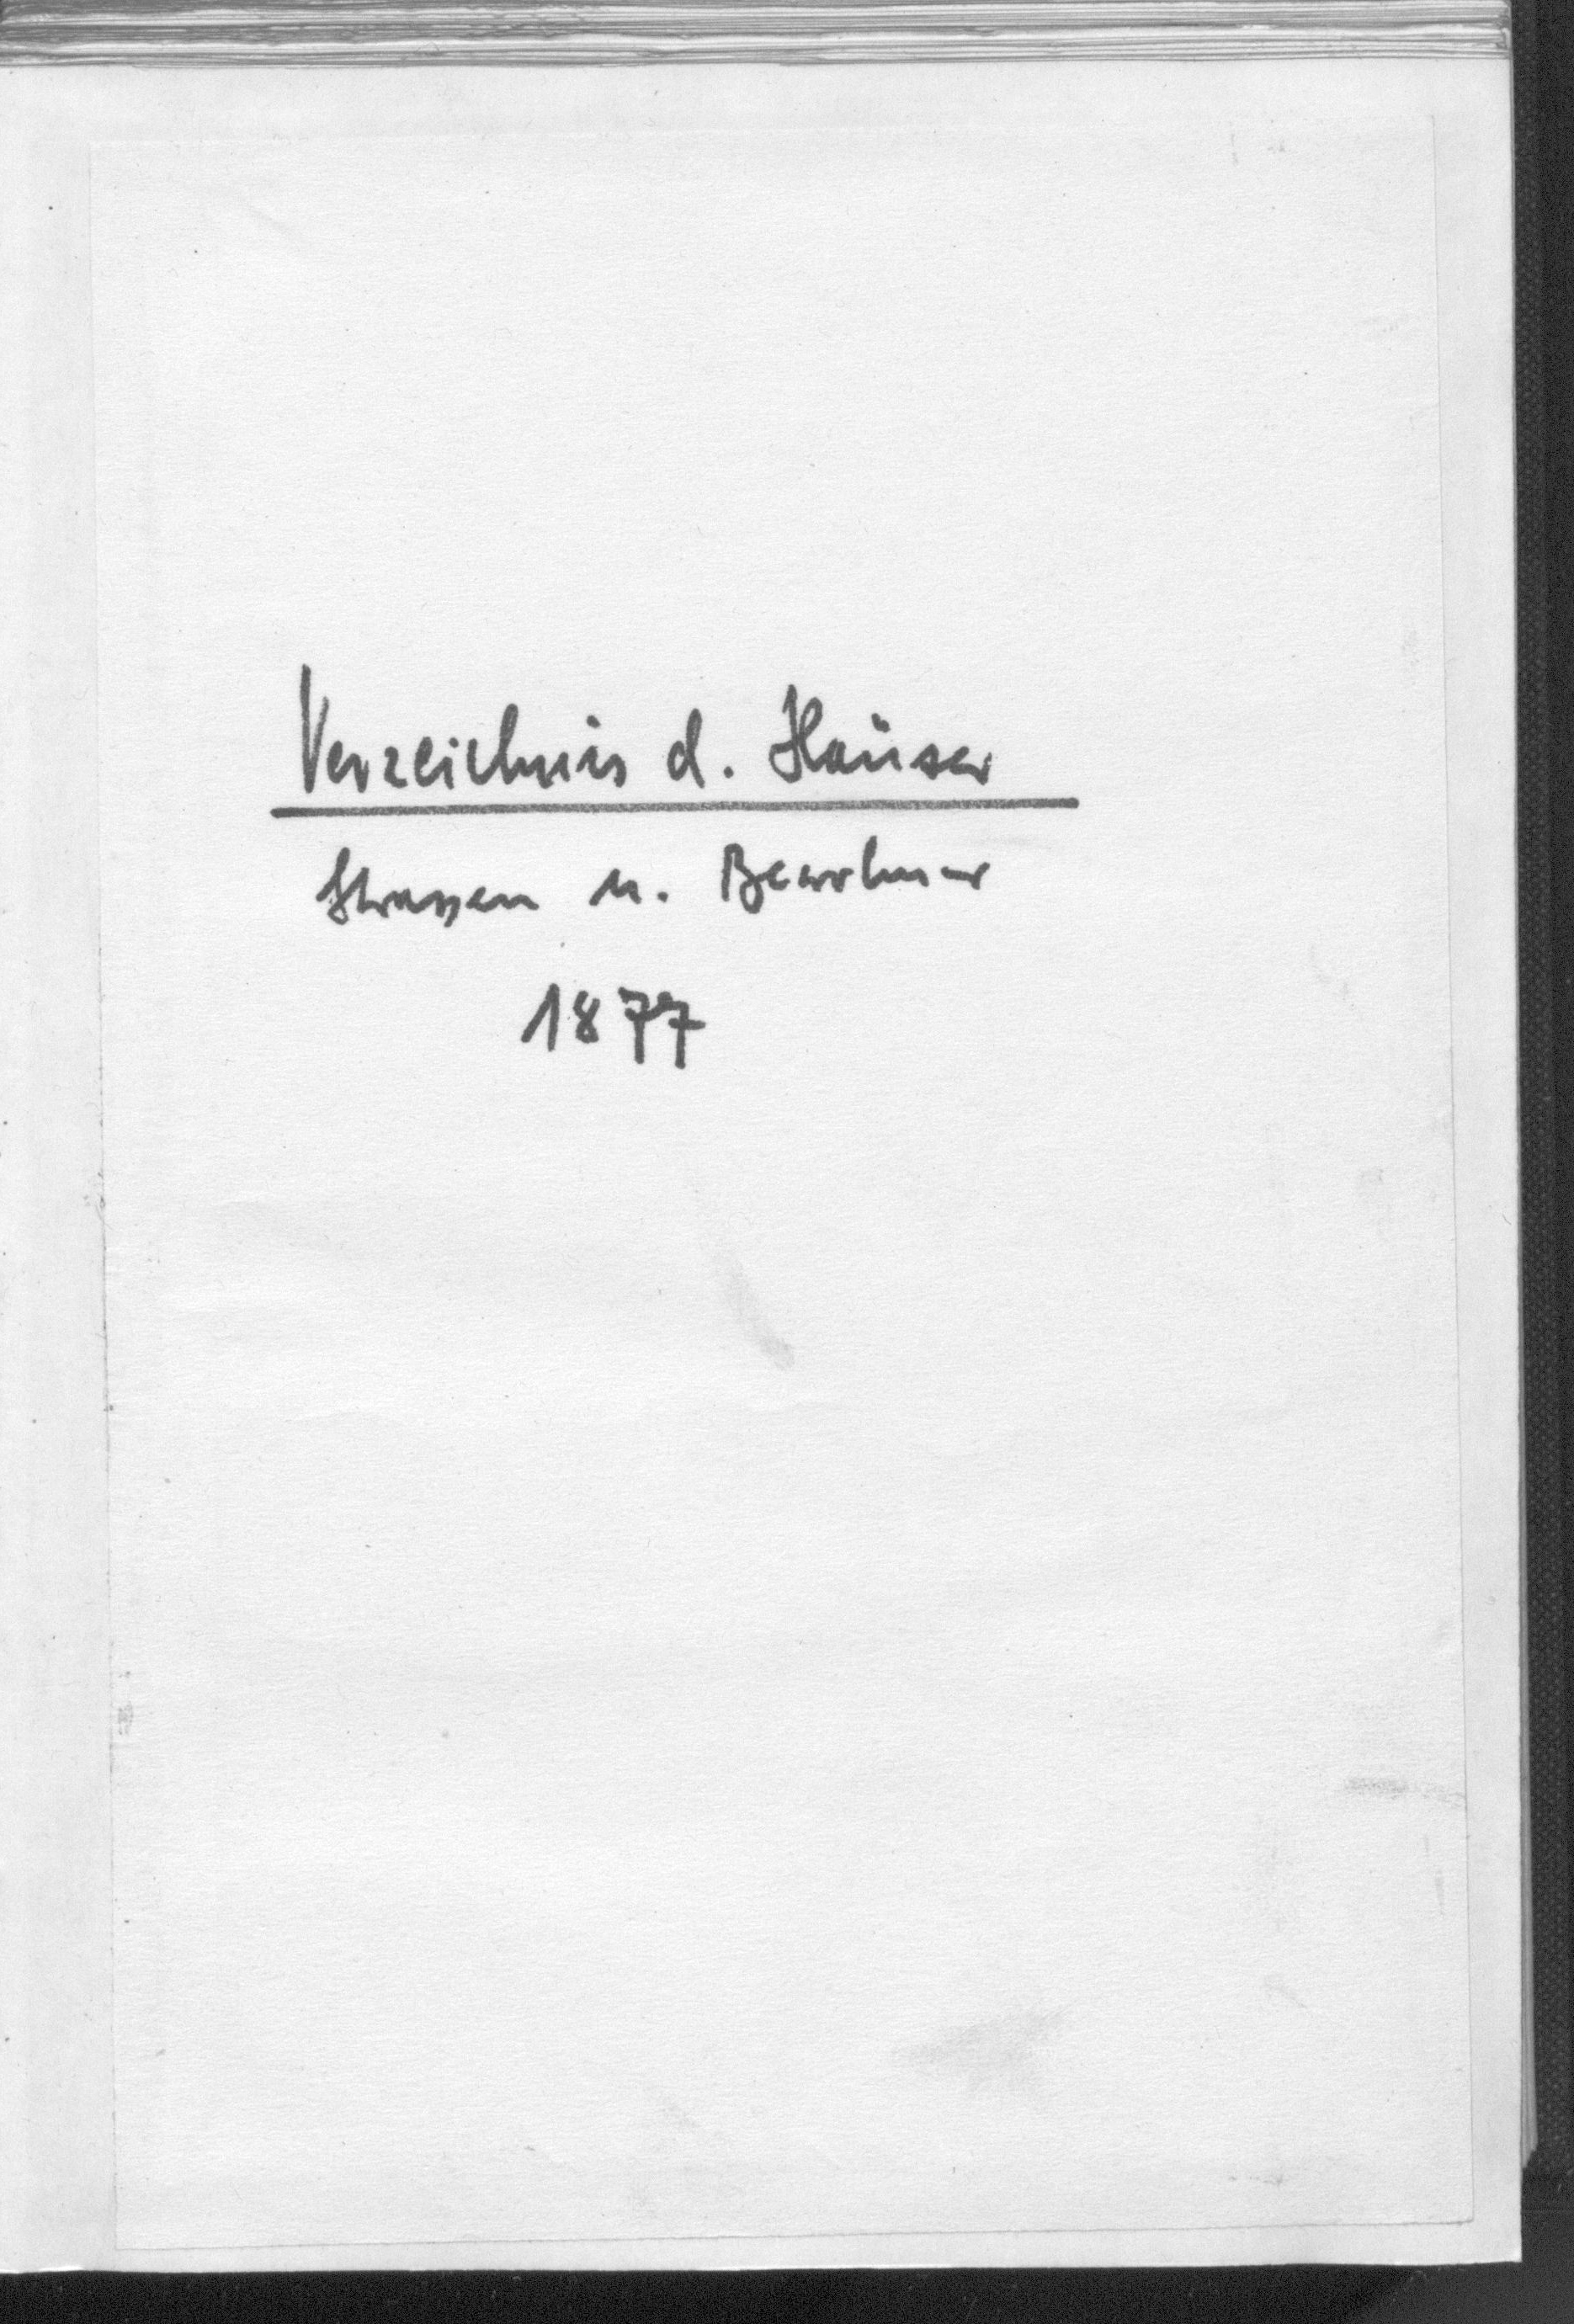 Verzeichnis d. Häuser
Strassen u. Bewohner
1877